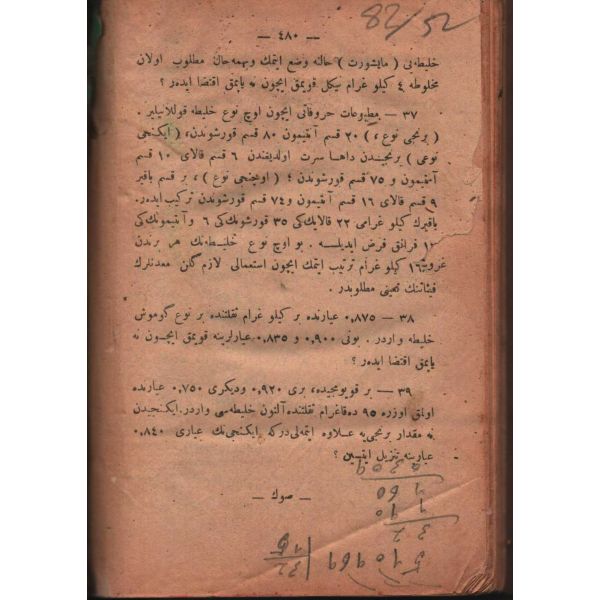 82/52
— ٤٨٠ —
خليطه‌يى ( مايشورت ) حالنه وضع ايتمك وبهمه‌حال مطلوب اولان
مخلوطه ٤ كيلو غرام نيكل قويمق ايچون نه يايمق اقتضا ايدەر ؟
٣٧ — مطبوعات حروفاتى ايچون اوچ نوع خليطه قوللانيلير .
( برنجى نوع ، ) ٢٠ قسم آنتيمون ٨٠ قسم قورشوندن ، ( ايكنجى
نوعى ) برنجيسندن داها سرت اولديغندن ٦ قسم قالاى ١٠ قسم
آنتيمون و ٧٥ قسم قورشوندن ؛ ( اوچنجى نوع ) ، بر قسم باقير
٩ قسم قالاى ١٦ قسم آنتيمون و ٧٤ قسم قورشوندن تركيب ايدەر.
باقيرك كيلو غرامى ٢٢ قالايك ٣٥ قورشونك ٦ وآنتيمونك
١٢ فرانق فرض ايديلسه . بو اوچ نوع خليطه‌نك هر برندن
١٦ كيلو غرام ترتيب ايتمك ايچون استعمالى لازم كلن معدنلرك
فيئاتنك تعيينى مطلوبدر .
٣٨ — ٠,٨٧٥ عيارنده بر كيلو غرام ثقلتنده بر نوع گوموش
خليطه واردر . بونى ٠,٩٠٠ و ٠,٨٣٥ عيارلرينه قويمق ايچون نه
يايمق اقتضا ايدەر ؟
٣٩ — بر قويومجيده، برى ٠,٩٢٠ وديكرى ٠,٧٥٠ عيارنده
اولمق اوزره ٩٥ دەقاغرام ثقلتنده آلتون خليطه‌سى واردر. ايكنجيدن
نه مقدار برنجى‌يه علاوه ايتمه‌لى‌دركه ايكنجى‌نك عيارى ٠,٨٤٠
عيارينه تنزيل ايتسين ؟
— صوك —